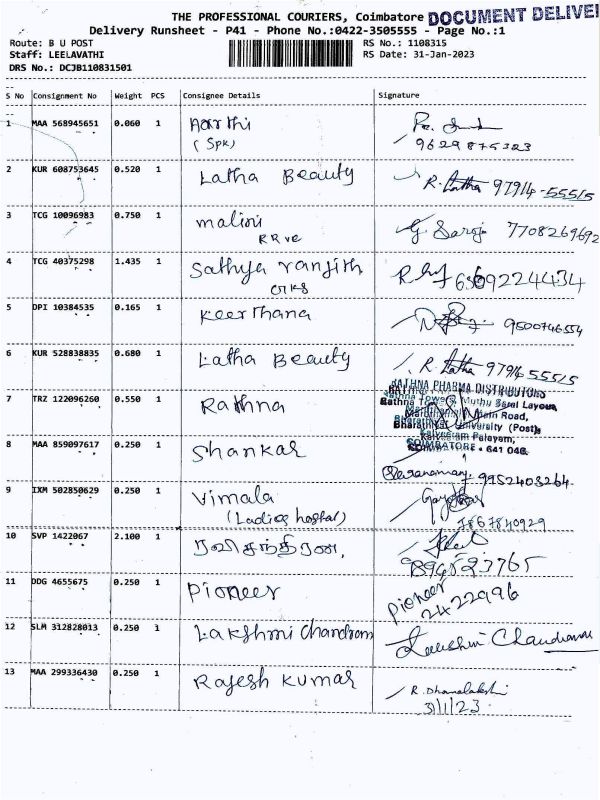 THE PROFESSIONAL COURIERS, Coimbatore DOCUMENT DELIVE
Delivery Runsheet - P41 - Phone No.:0422-3505555 - Page No.:1
Route: B U POST RS No.: 1108315
Staff: LEELAVATHI RS Date: 31-Jan-2023
DRS No.: DCJB110831501
S No Consignment No Weight PCS Consignee Details Signature
1 MAA 568945651 0.060 1 Aarthi
(Spk) 9629875323
2 KUR 608753645 0.520 1 Latha Beauty R. Latha 97914-55515
3 TCG 10096983 0.750 1 malini G. Saroja 7708269692
4 TCG 40375298 1.435 1 Sathya ranjith 6369224434
5 DPI 10384535 0.165 1 Keerthana 9500746554
6 KUR 528838835 0.680 1 Latha Beauty R. Latha 97914 55515
7 TRZ 122096260 0.550 1 Rathna
RATHNA PHARMA DISTRIBUTORS
Rathna Towers, Muthu Saral Layout,
Maruthamalai Main Road,
Bharathiar University (Post),
Kalveeram Palayam,
COIMBATORE - 641 046.
8 MAA 859097617 0.250 1 Shankar 9952403264
9 IXM 502850629 0.250 1 Vimala
(Ladies hostel) 7867840929
10 SVP 1422067 2.100 1 ரவிசந்திரன்.
11 DDG 4655675 0.250 1 Pioneer Pioneer
2422996
12 SLM 312828013 0.250 1 Lakshmi Chandran
13 MAA 299336430 0.250 1 Rajesh Kumar R. Dhanalakshmi
31/1/23